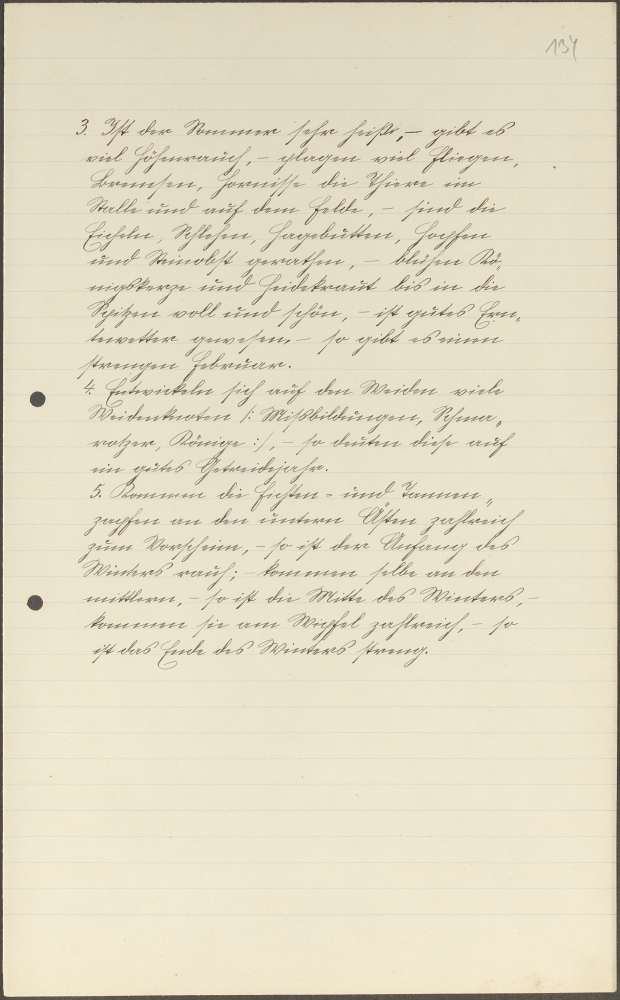 134
3. Ist der Sommer sehr heiß, – gibt es
viel Höhenrauch, – plagen viel Fliegen,
Bremsen, Hornisse die Thiere im
Stalle und auf dem Felde, – sind die
Eicheln, Schlehen, Hagebutten, Hopfen
und Steinobst gerathen, – blühen Kö-
nigskerze und Heidekraut bis in die
Spitzen voll und schön, – ist gutes Ern-
tewetter gewesen, – so gibt es einen
strengen Februar.
4. Entwickeln sich auf den Weiden viele
Weidenknoten /: Mißbildungen, Schma-
rotzer, Könige :/, – so deuten diese auf
ein gutes Getreidejahr.
5. Kommen die Fichten- und Tannen-
zapfen an den untern Ästen zahlreich
zum Vorschein, – so ist der Anfang des
Winters rauh; – kommen selbe an den
mittlern, – so ist die Mitte des Winters, –
kommen sie am Wipfel zahlreich, – so
ist das Ende des Winters streng.